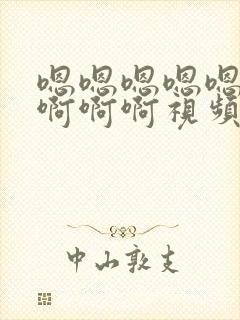 嗯嗯嗯嗯嗯
啊啊啊视頻
中山敦支